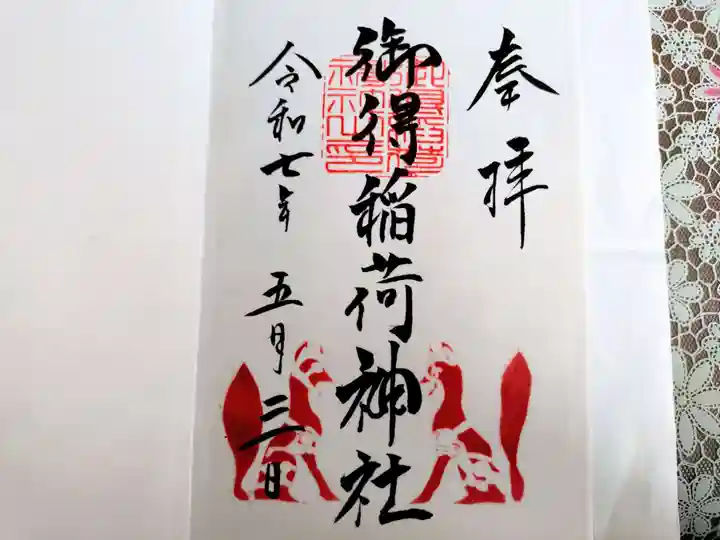 奉拝
御得稲荷神社
令和七年 五月三日